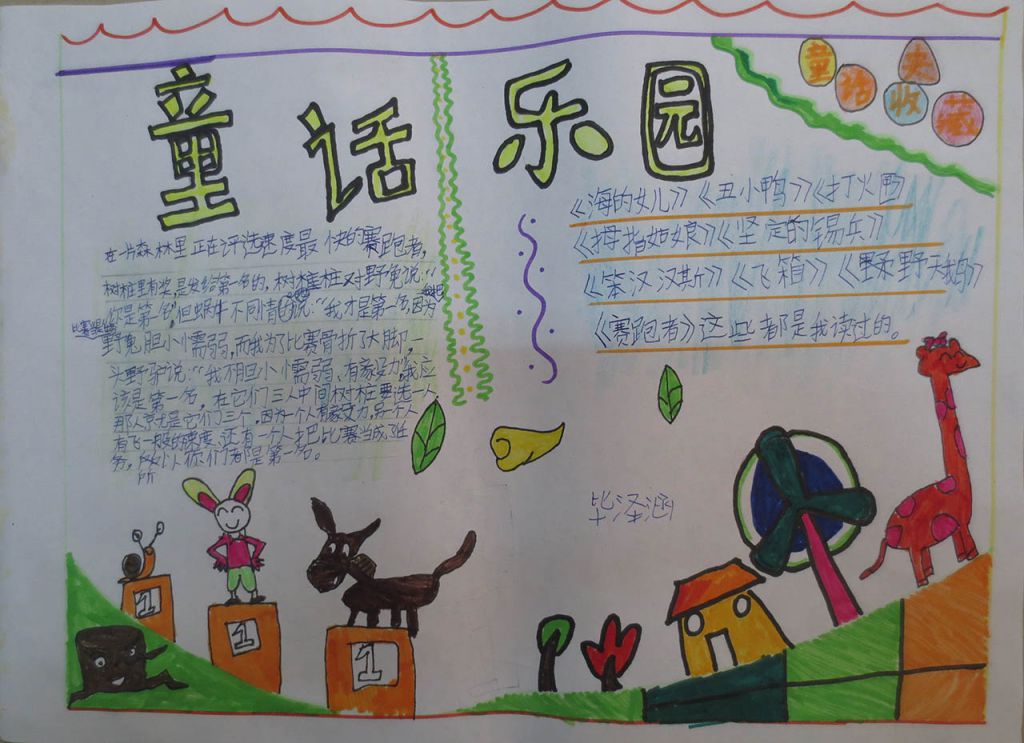 童话乐园
童话大收藏
在一片森林里正在评选速度最快的赛跑者,
树桩里有奖,是发给第一名的,树桩对野兔说:“
你是第一名”但蜗牛不同情的说:“我才是第一名,因为
野兔胆小懦弱,而我为了比赛骨折了大脚,一
头野驴说:“我不胆小懦弱、有家务力,我应
该是第一名,在它们三人中间树桩要选一人
那人就是它们三个,因为一个人有家务力,另一个人
有飞一般的速度,还有一个人才把比赛当成了任
务,所以你们都是第一名。
《海的女儿》《丑小鸭》《打火匣》
《拇指姑娘》《坚定的锡兵》
《笨汉汉斯》《飞箱》《野天鹅》
《赛跑者》这些都是我读过的。
毕泽涵
1
1
1